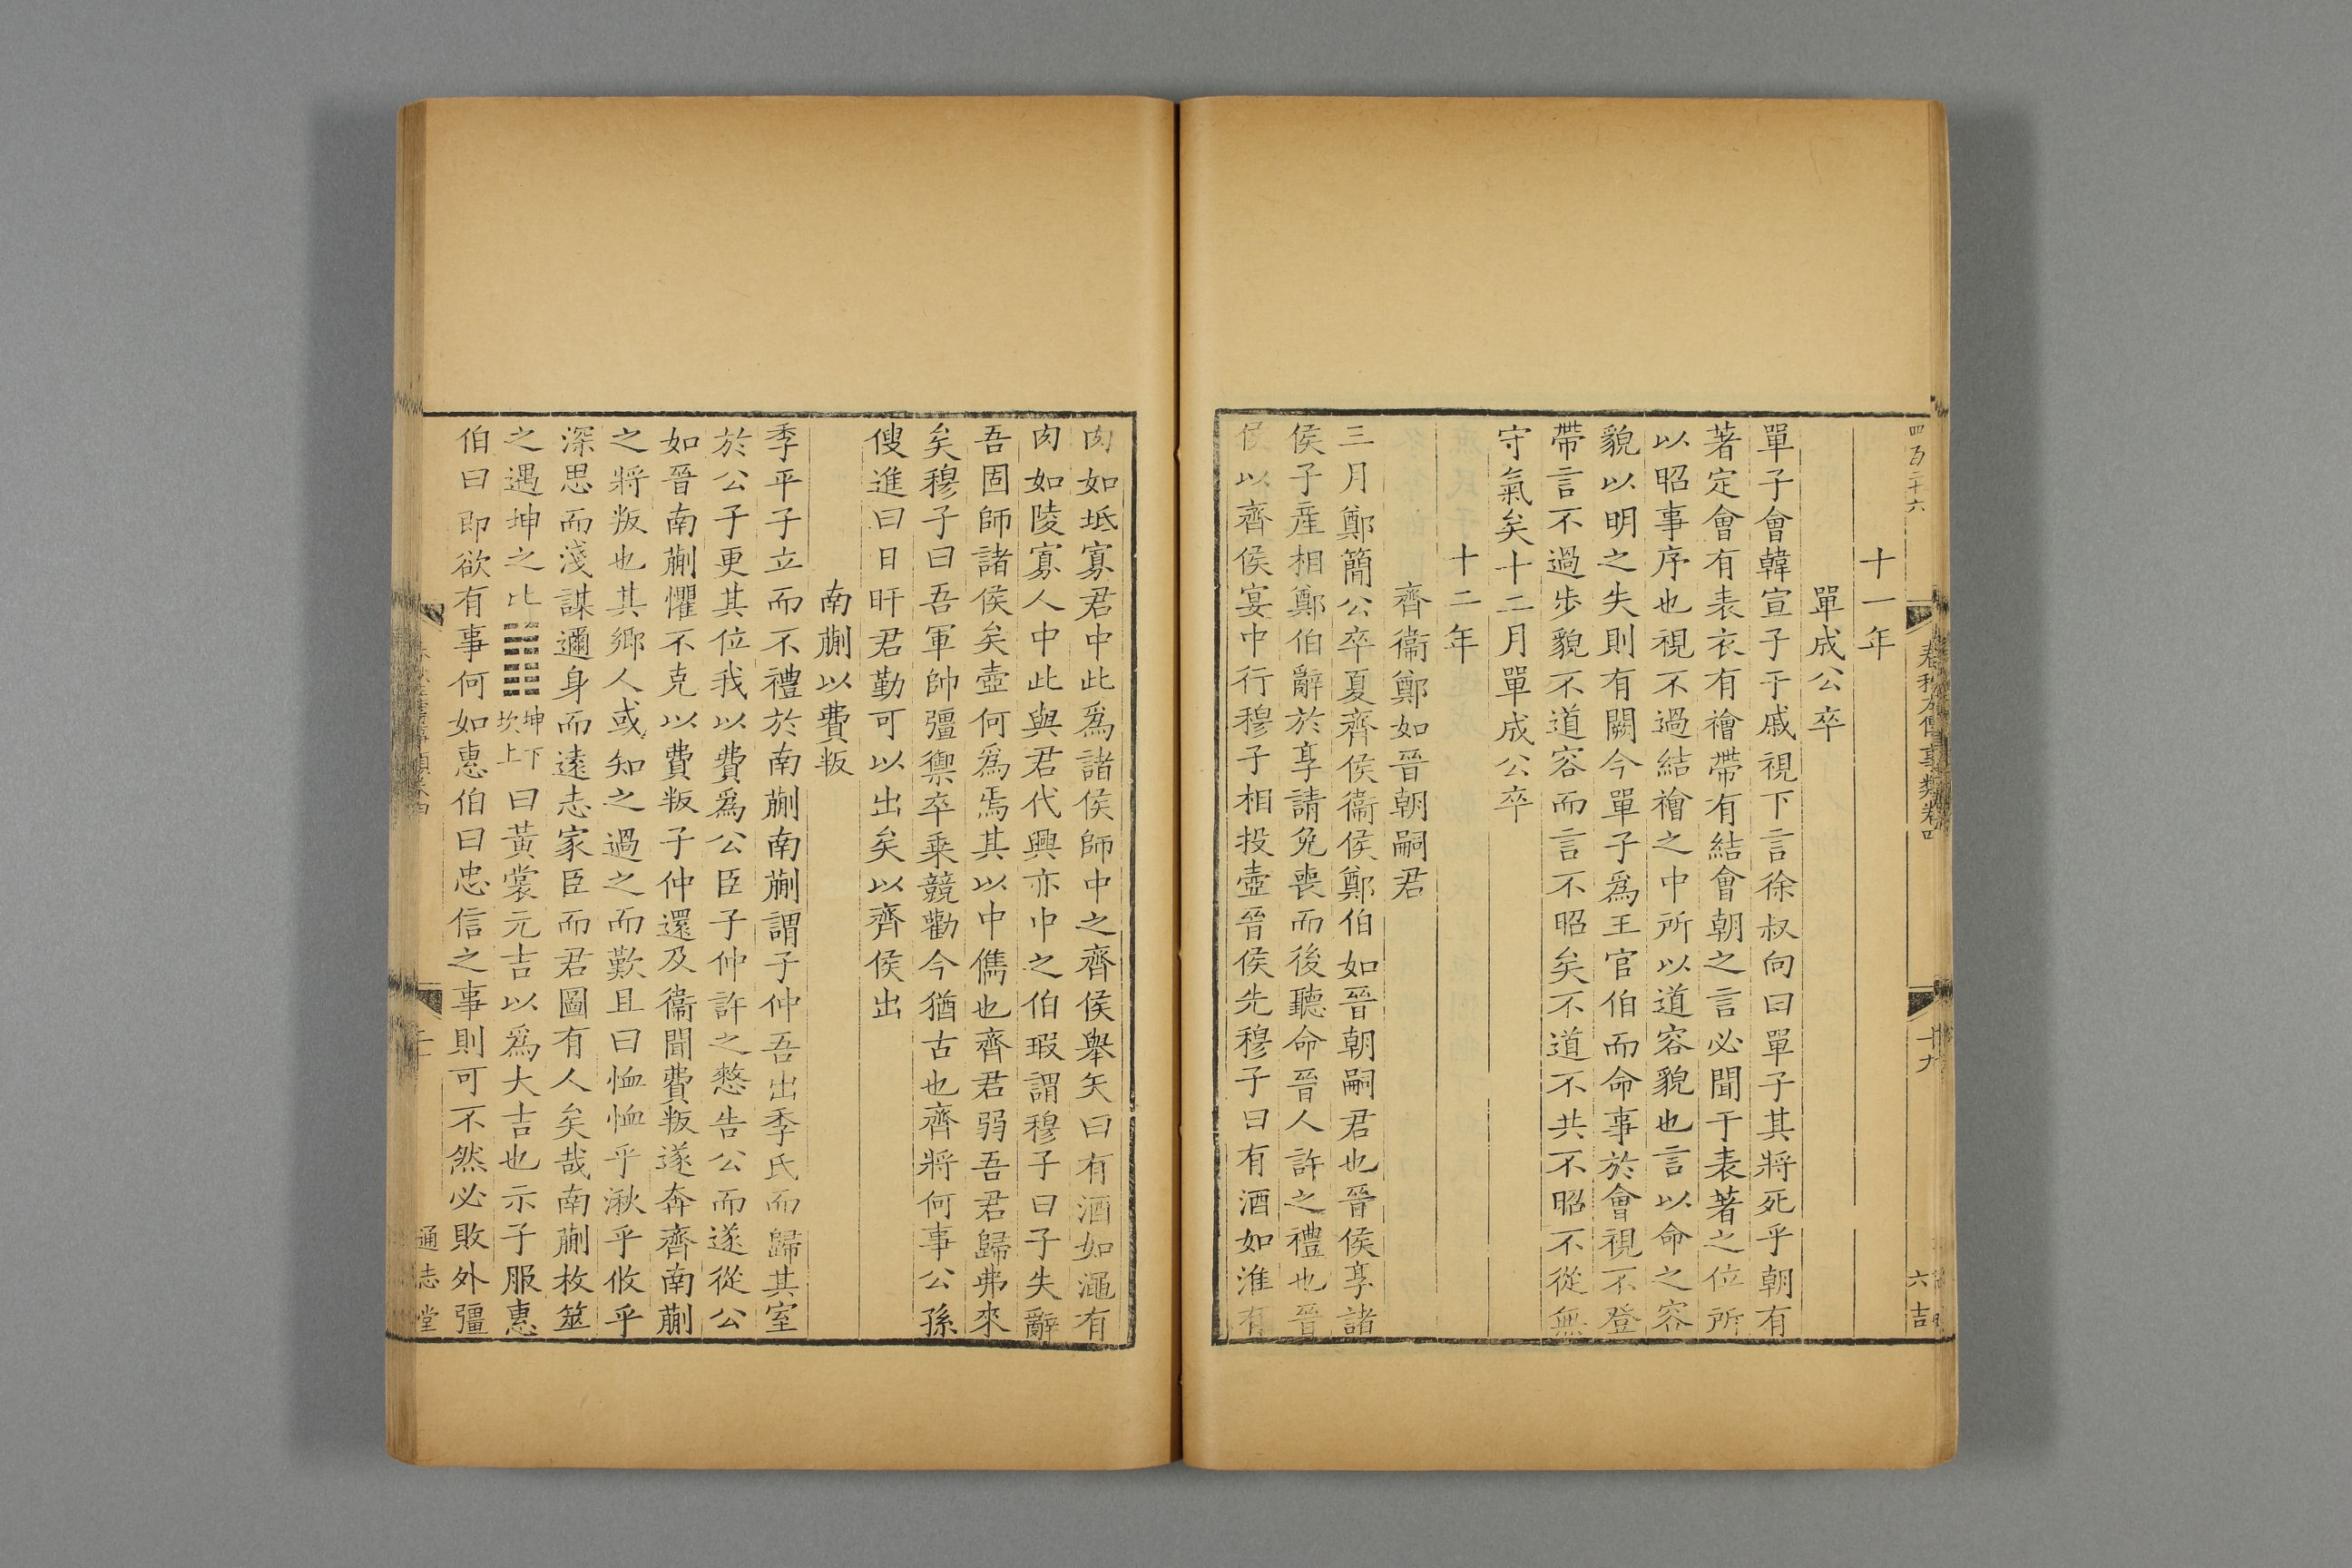 四百二十六
春秋左傳事類卷四
十九
六吉
十一年
單成公卒
單子會韓宣子于戚視下言徐叔向曰單子其將死乎朝有
著定會有表衣有襘帶有結會朝之言必聞于表著之位所
以昭事序也視不過結襘之中所以道容貌也言以命之容
貌以明之失則有闕今單子爲王官伯而命事於會視不登
帶言不過步貌不道容而言不昭矣不道不共不昭不從無
守氣矣十二月單成公卒
十二年
齊衞鄭如晉朝嗣君
三月鄭簡公卒夏齊侯衞侯鄭伯如晉朝嗣君也晉侯享諸
侯子産相鄭伯辭於享請免喪而後聽命晉人許之禮也晉
侯以齊侯宴中行穆子相投壺晉侯先穆子曰有酒如淮有
肉如坻寡君中此爲諸侯師中之齊侯舉矢曰有酒如澠有
肉如陵寡人中此與君代興亦中之伯瑕謂穆子曰子失辭
吾固師諸侯矣壺何爲焉其以中儁也齊君弱吾君歸弗來
矣穆子曰吾軍帥彊禦卒乘競勸今猶古也齊將何事公孫
傁進曰日旰君勤可以出矣以齊侯出
南蒯以費叛
季平子立而不禮於南蒯南蒯謂子仲吾出季氏而歸其室
於公子更其位我以費爲公臣子仲許之慗告公而遂從公
如晉南蒯懼不克以費叛子仲還及衞聞費叛遂奔齊南蒯
之將叛也其鄉人或知之過之而歎且曰恤恤乎湫乎攸乎
深思而淺謀邇身而遠志家臣而君圖有人矣哉南蒯枚筮
之遇坤之比䷁䷇坤下坎上曰黃裳元吉以爲大吉也示子服惠
伯曰即欲有事何如惠伯曰忠信之事則可不然必敗外彊
通志堂